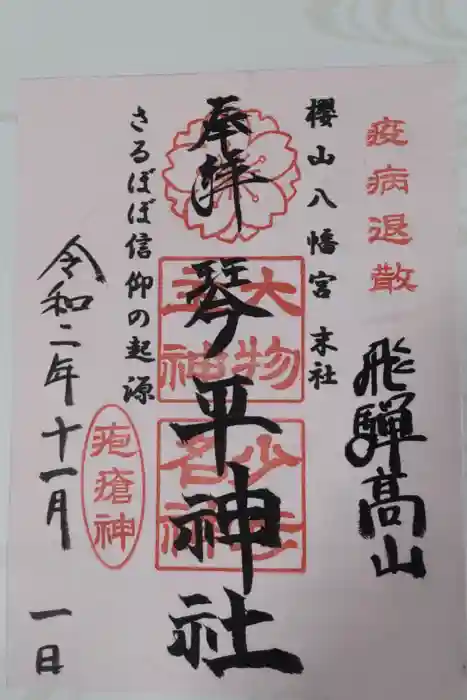 疫病退散
飛騨高山
櫻山八幡宮 末社
奉拝
琴平神社
大物主神
さるぼぼ信仰の起源
疱瘡神
令和二年十一月 一日